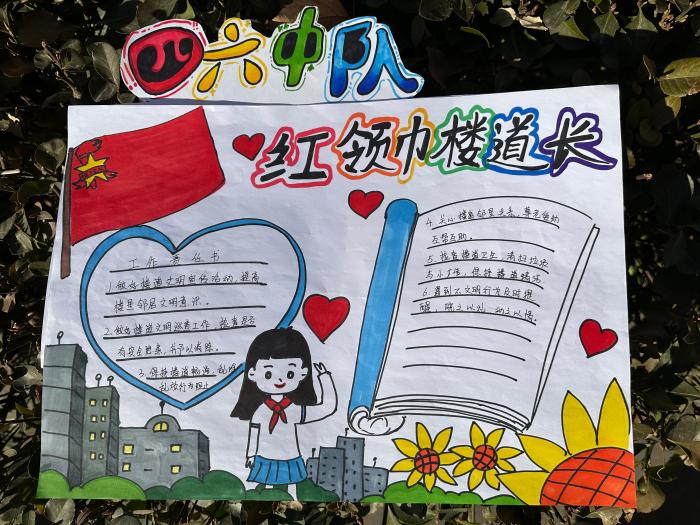 四六中队
红领巾楼道长
工作责任书
1.做好楼道文明宣传活动，提高
楼里邻居文明意识。
2.做好楼道文明巡查工作，检查是否
有安全隐患，并予以清除。
3.保持楼道畅通，乱堆
乱放行为阻止
4.关心楼里邻里关系，尊老爱幼
互帮互助。
5.检查楼道卫生，清扫垃圾
与小广告，保持楼道整洁。
6.看到不文明行为及时提
醒，晓之以礼，动之以情。